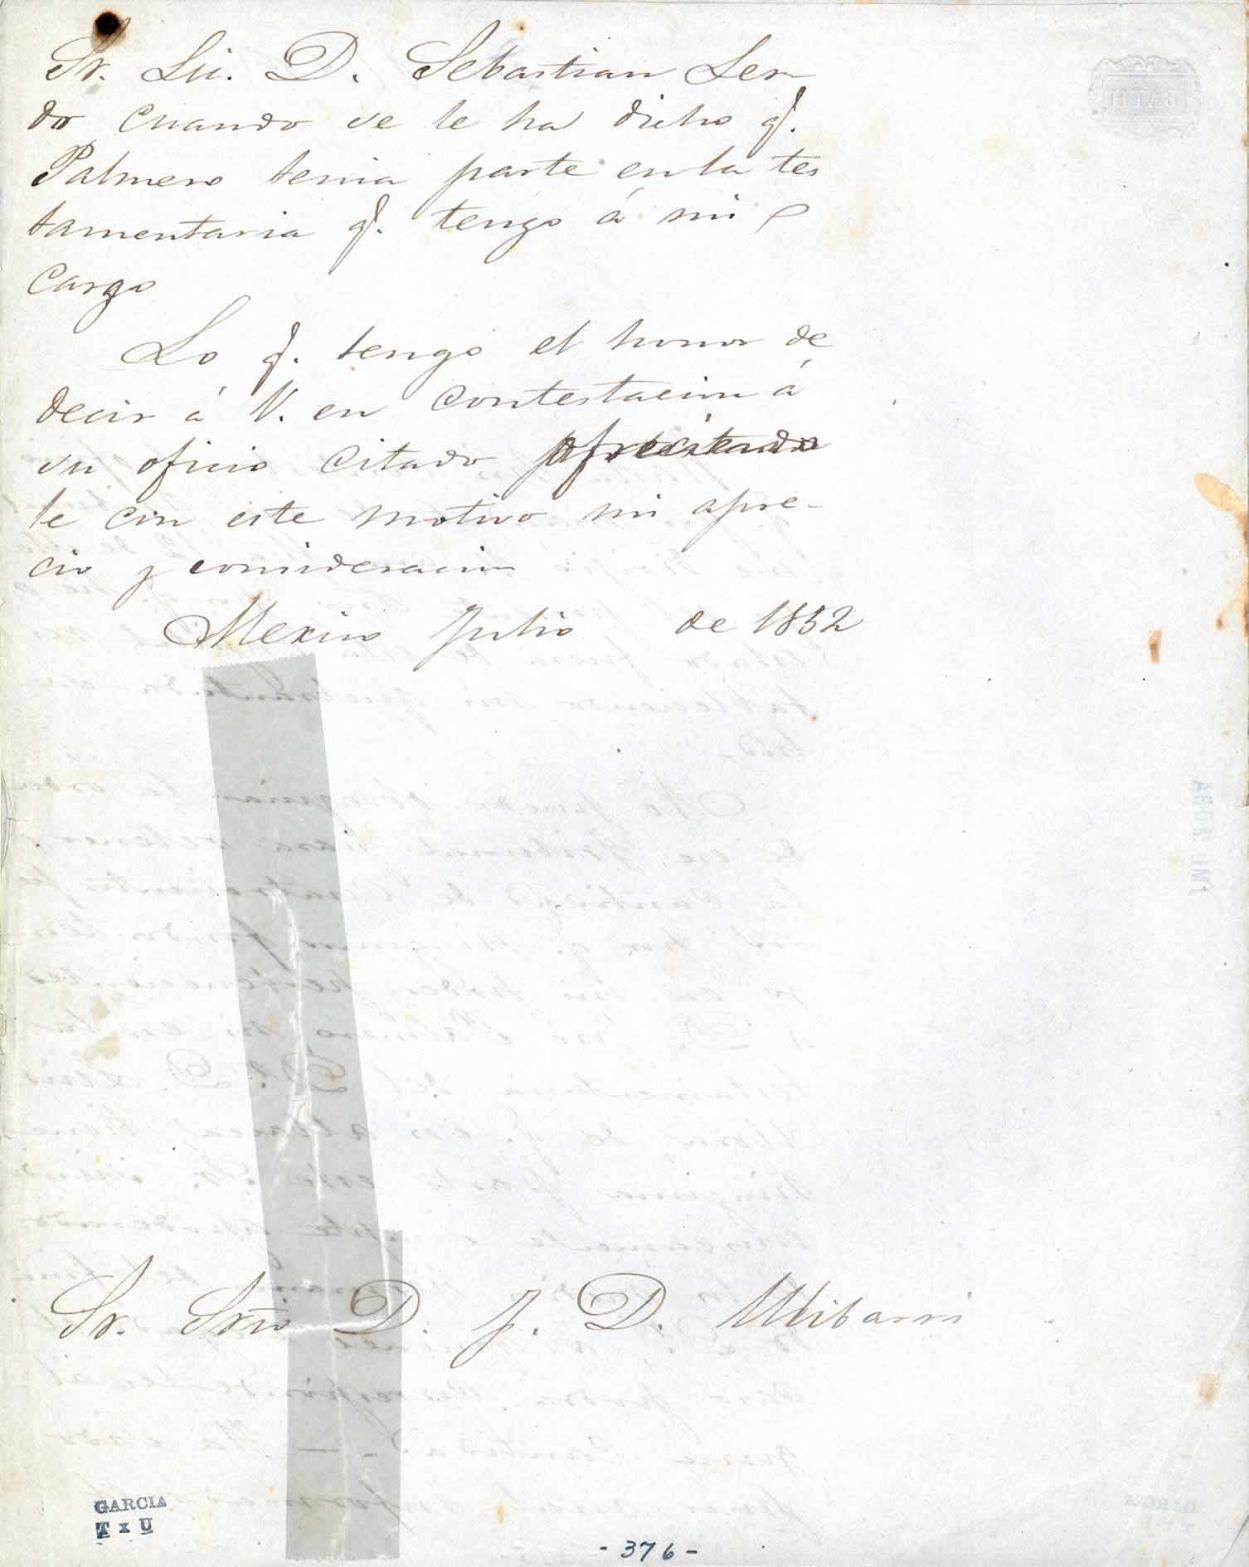 Sr. Lic. D. Sebastian Ler
do cuando se le ha dicho q.
Palmero tenia parte en la tes
tamentaria q. tengo á mi
cargo
Lo q. tengo el honor de
decir á V. en contestacion á
su oficio citado
le con este motivo mi apre-
cio y consideracion
Mexico Julio de 1852
Sr. Srio D. J. D. Ulibarri
GARCIA
T x U
- 376 -
BATH